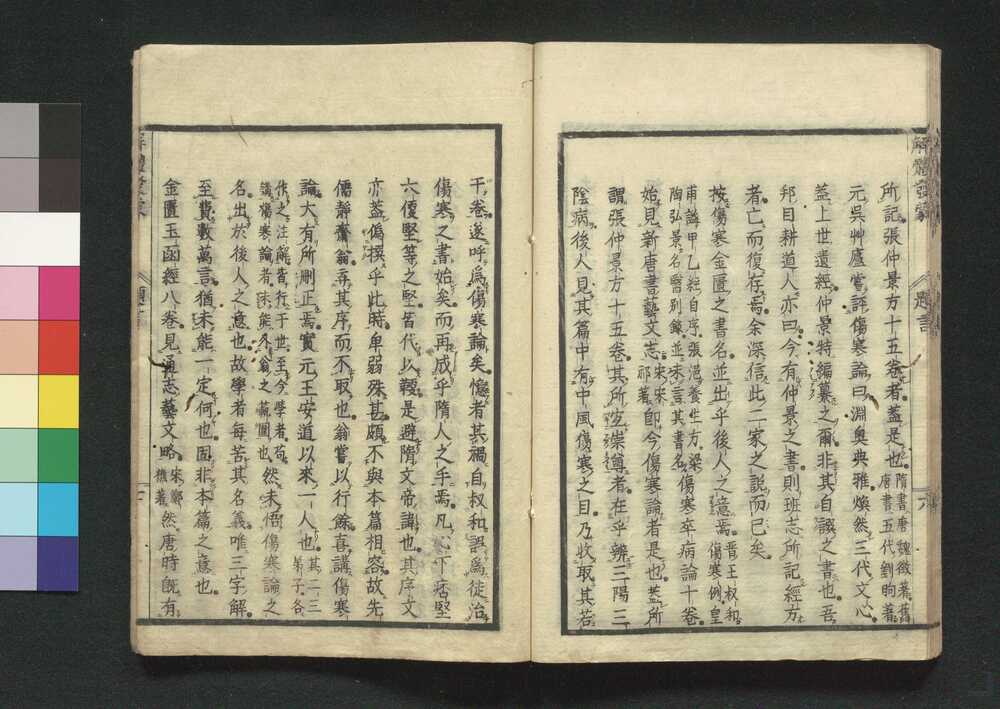 所記張仲景方十五卷者蓋是也隋書唐魏徵著舊唐書五代劉昫著
元吳艸廬嘗評傷寒論曰淵奧典雅煥然三代文心
蓋上世遺經仲景特編纂之爾非其自譔之書也吾
邦目耕道人亦曰今有仲景之書則班志所記經方
者亡而復存焉余深信此二家之說而已矣
按傷寒金匱之書名並出乎後人之意焉晋王叔和傷寒例皇
甫謐甲乙經自序張湛養生方梁陶弘景名醫別錄並未言其書名傷寒卒病論十卷
始見新唐書藝文志宋宋祁著卽今傷寒論者是也其所
謂張仲景方十五卷其所宜崇尊者在乎辨三陽三
陰病後人見其篇中有中風傷寒之目乃收取其若
干卷遂呼爲傷寒論矣懷者其禍自叔和誤爲徒治
傷寒之書始矣而再成乎隋人之手焉凡心下痞堅
六便堅等之堅皆代以鞕是避隋文帝諱也其序文
亦蓋僞撰乎此時卑弱殊甚頗不與本篇相容故先
儒靜齋翁弃其序而不取也翁嘗以行餘喜講傷寒
論大有所刪正焉實元王安道以來一人也其二三弟子各
作之注解皆行于世至今學者苟講傷寒論者未能外翁之範圍也然未悟傷寒論之
名出於後人之意也故學者每苦其名義唯三字解
至費數萬言猶未能一定何也固非本篇之意也
金匱玉函經八卷見通志藝文略宋鄭樵著然唐時旣有
解體發蒙
題言
六